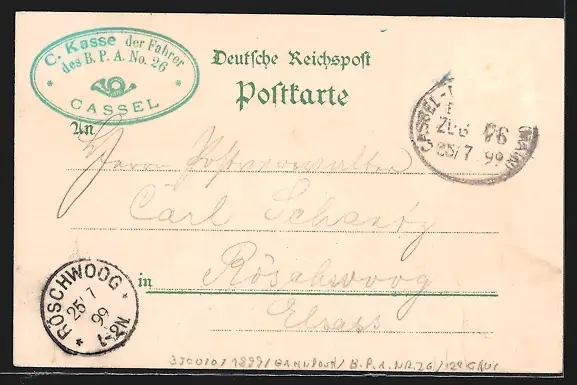 C. Kasse der Fahrer
des B. P. A. No. 26
CASSEL
Deutsche Reichspost
Postkarte
An
Herrn Postverwalter
Carl Schantz
in Röschwoog
Elsass
CASSEL-
ZUG 96
25/7 99
(MAIN)
RÖSCHWOOG
25/7
99
1-2N.